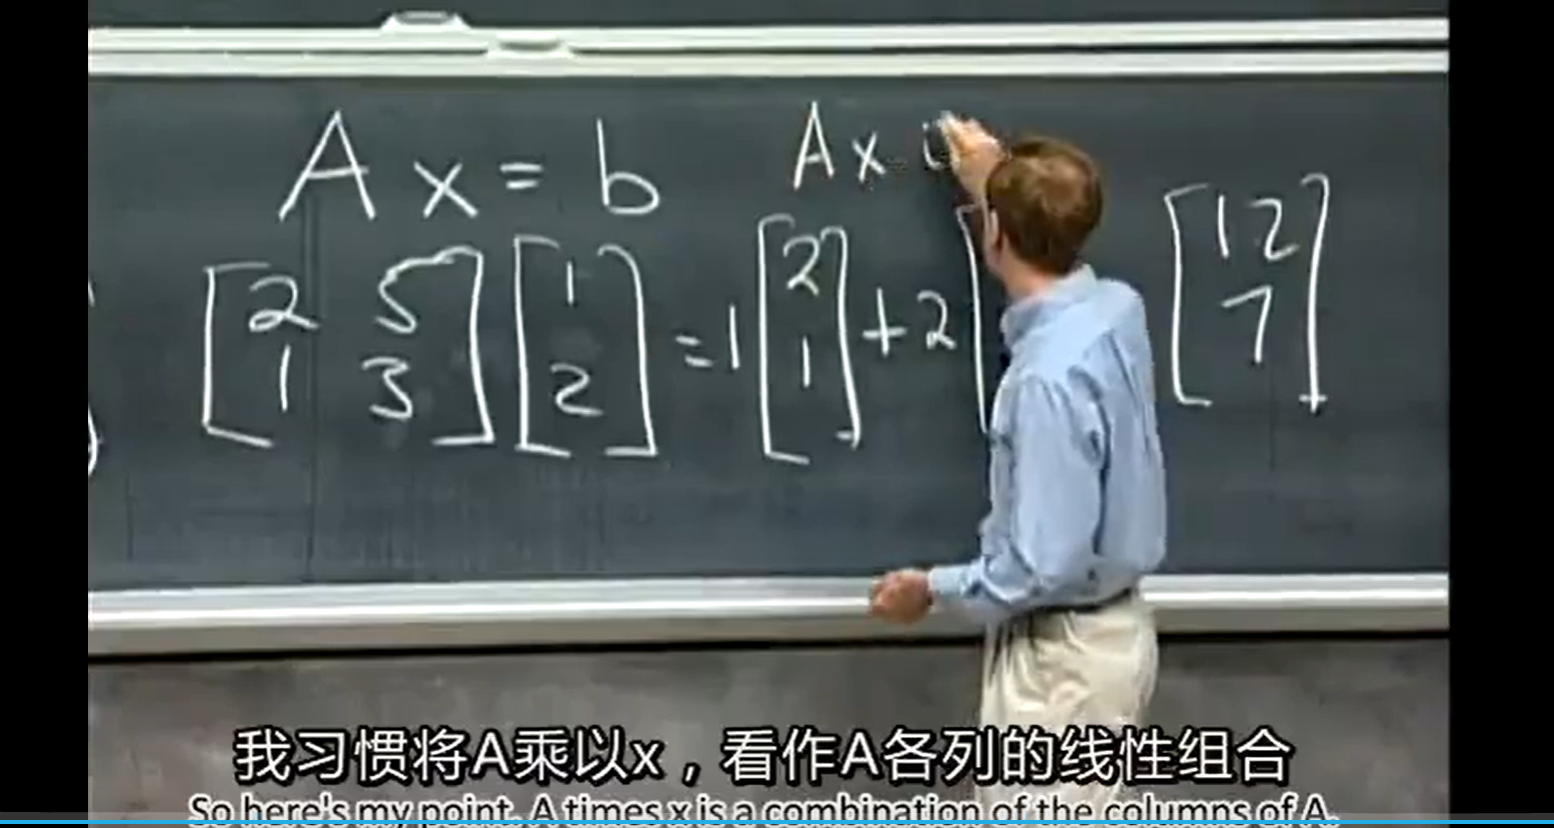 A x = b
A x i
[2 5
1 3] [1
2] = 1 [2
1] + 2 [ [12
7]
我习惯将A乘以x，看作A各列的线性组合
So here's my point. A times x is a combination of the columns of A.